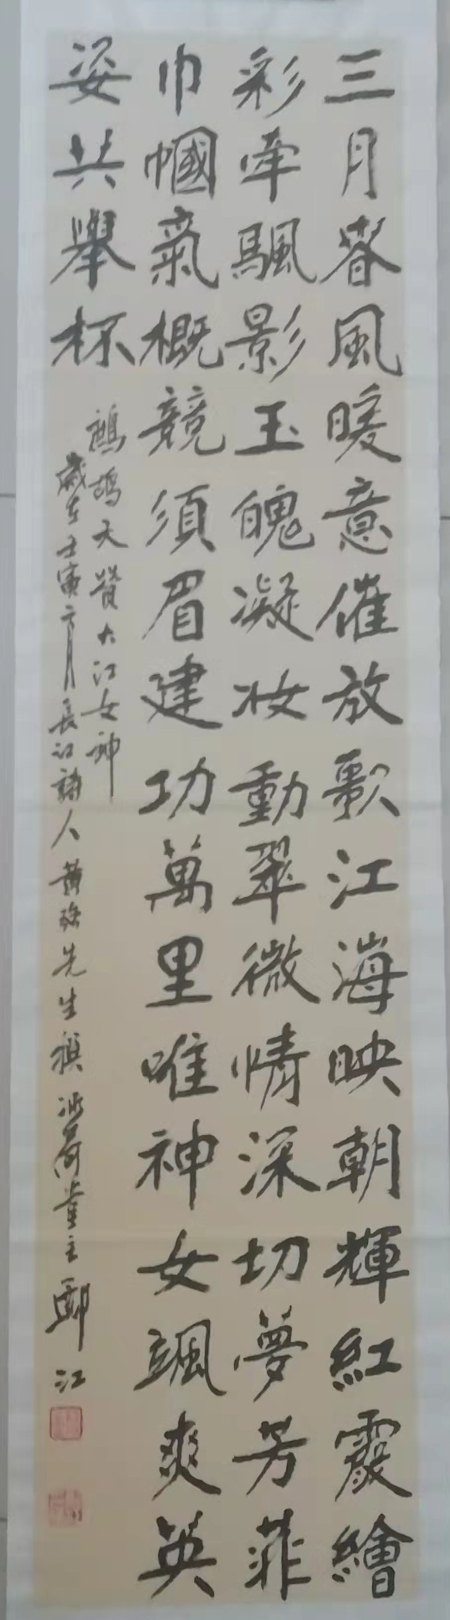 三月春風暖意催放歌江海映朝輝紅霞繪
彩牽飄影玉魄凝妝動翠微情深切夢芳菲
巾幗氣概競須眉建功萬里唯神女颯爽英
姿共舉杯
鷓鴣天贊大江女神
歲在壬寅六月長江詩人黃 先生撰 荷堂主鄢江